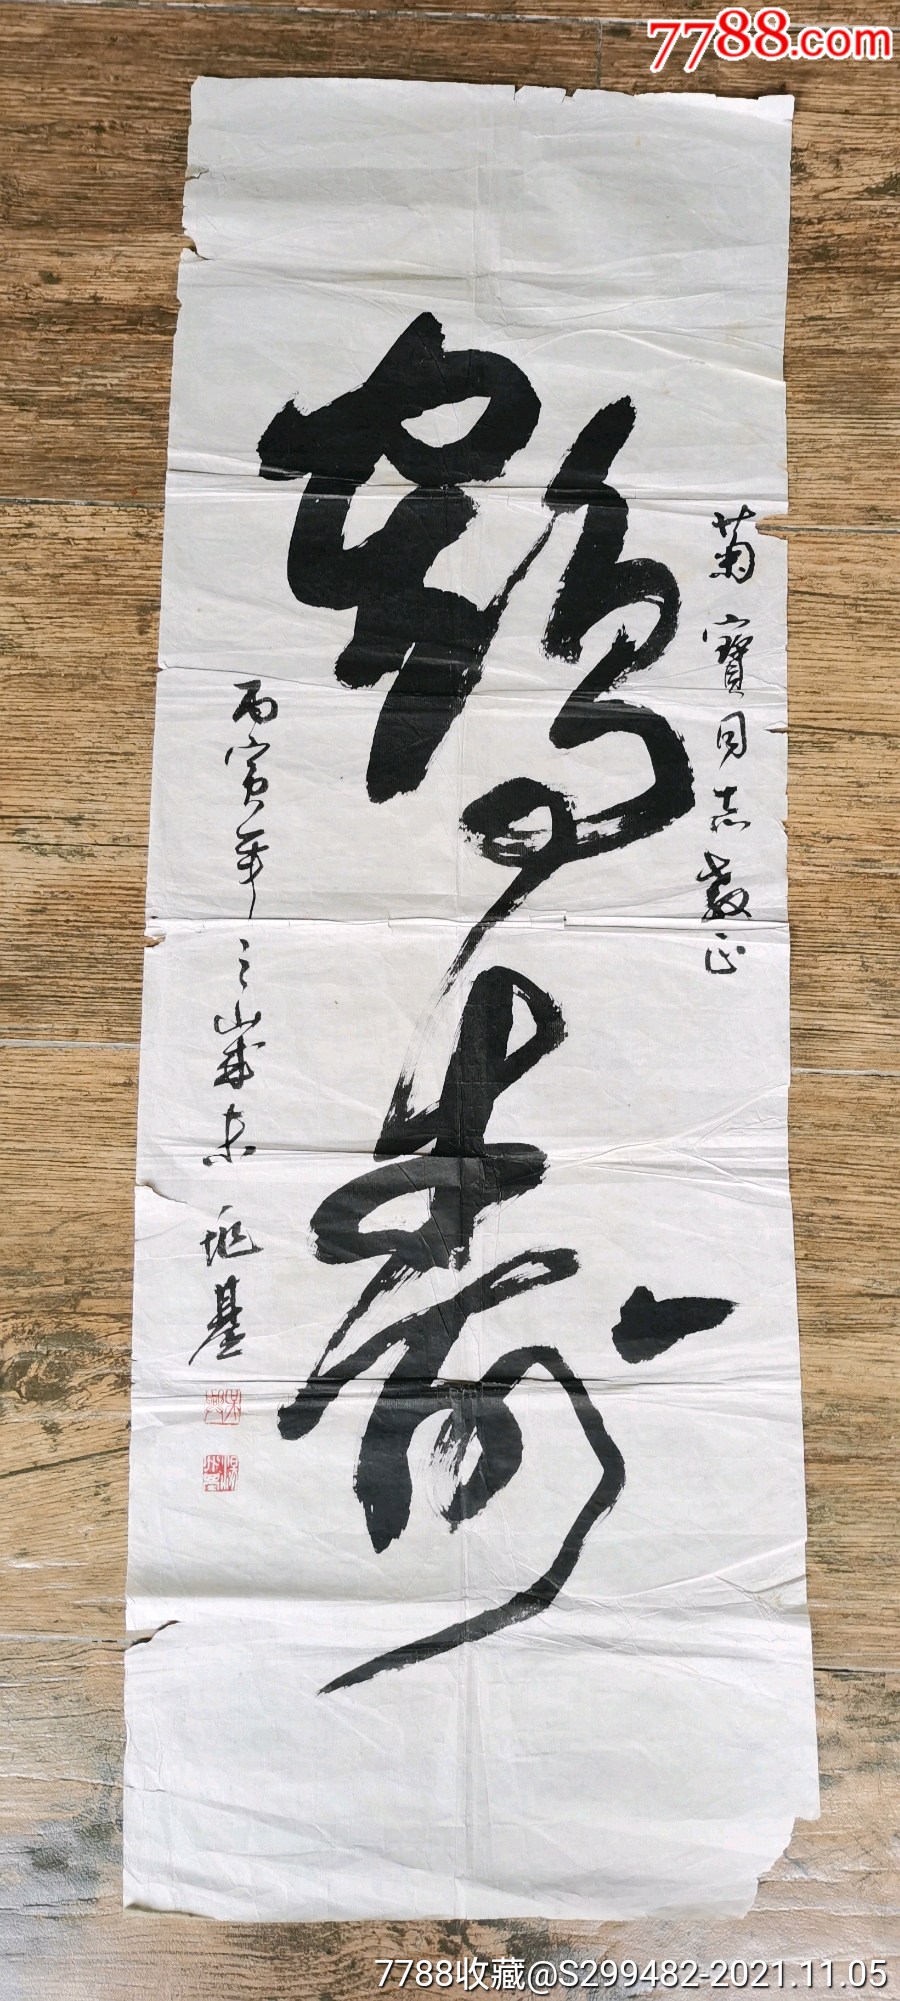 7788.com
菊寶同志教正
鹤寿
丙寅年之山
兆基
7788收藏@S299482-2021.11.05